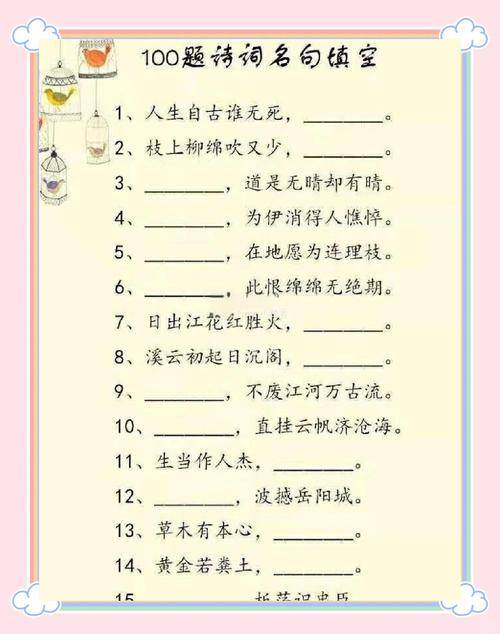 100题诗词名句填空
1、人生自古谁无死，________。
2、枝上柳绵吹又少，________。
3、________，道是无晴却有晴。
4、________，为伊消得人憔悴。
5、________，在地愿为连理枝。
6、________，此恨绵绵无绝期。
7、日出江花红胜火，________。
8、溪云初起日沉阁，________。
9、________，不废江河万古流。
10、________，直挂云帆济沧海。
11、生当作人杰，________。
12、________，波撼岳阳城。
13、草木有本心，________。
14、黄金若粪土，________。